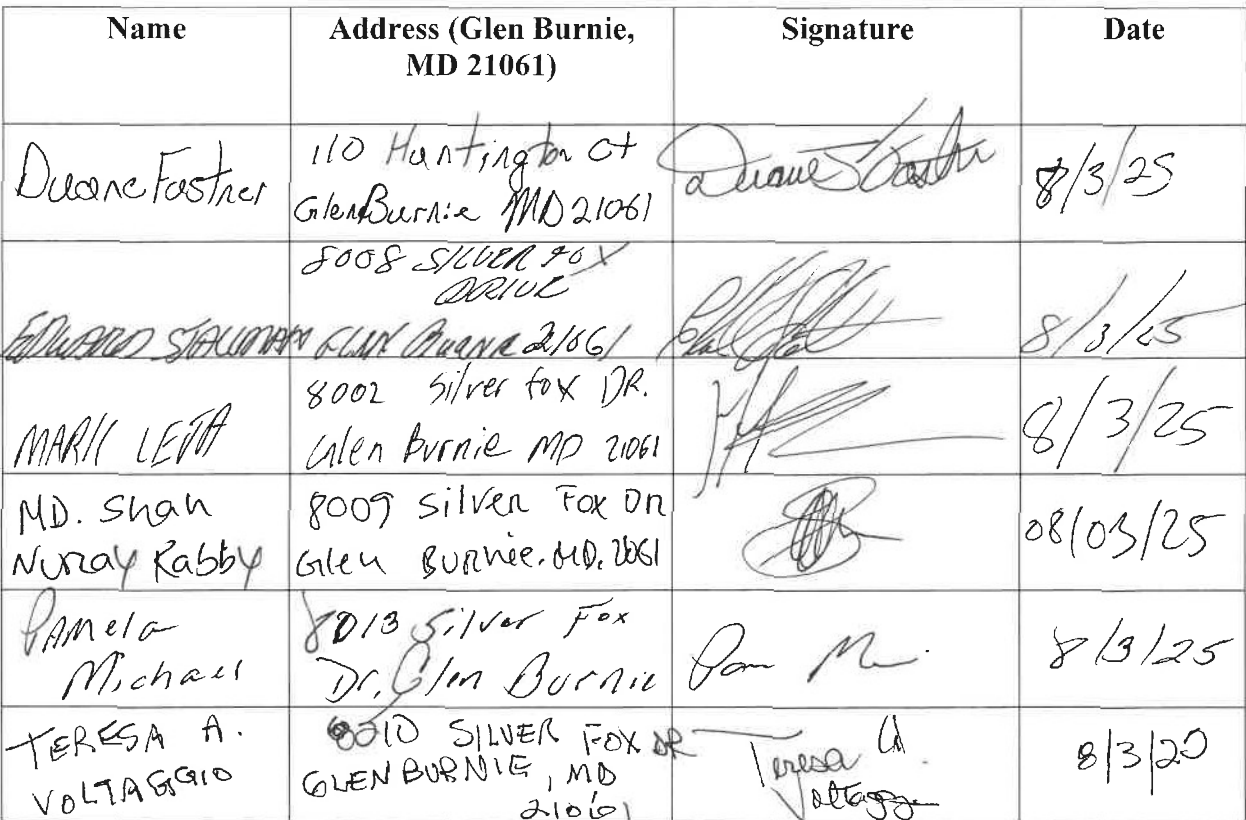 Name
Address (Glen Burnie,
MD 21061)
Signature
Date
Duane Fastner
110 Huntington Ct
Glen Burnie MD 21061
Duane Fastner
8/3/25
8008 SILVER FOX
DRIVE
EDWARD STALLMAN
GLEN Burnie 21061
8/3/25
8002 Silver fox DR.
MARK LETA
Glen Burnie MD 21061
8/3/25
MD. Shah
Nuray Rabby
8009 Silver Fox Dr
Glen Burnie. MD. 2061
08/03/25
Pamela
Michael
8013 Silver Fox
Dr. Glen Burnie
Pam
8/3/25
TERESA A.
VOLTAGGIO
8010 SILVER FOX DR
GLEN BURNIE, MD
21061
Teresa A
Voltaggio
8/3/20